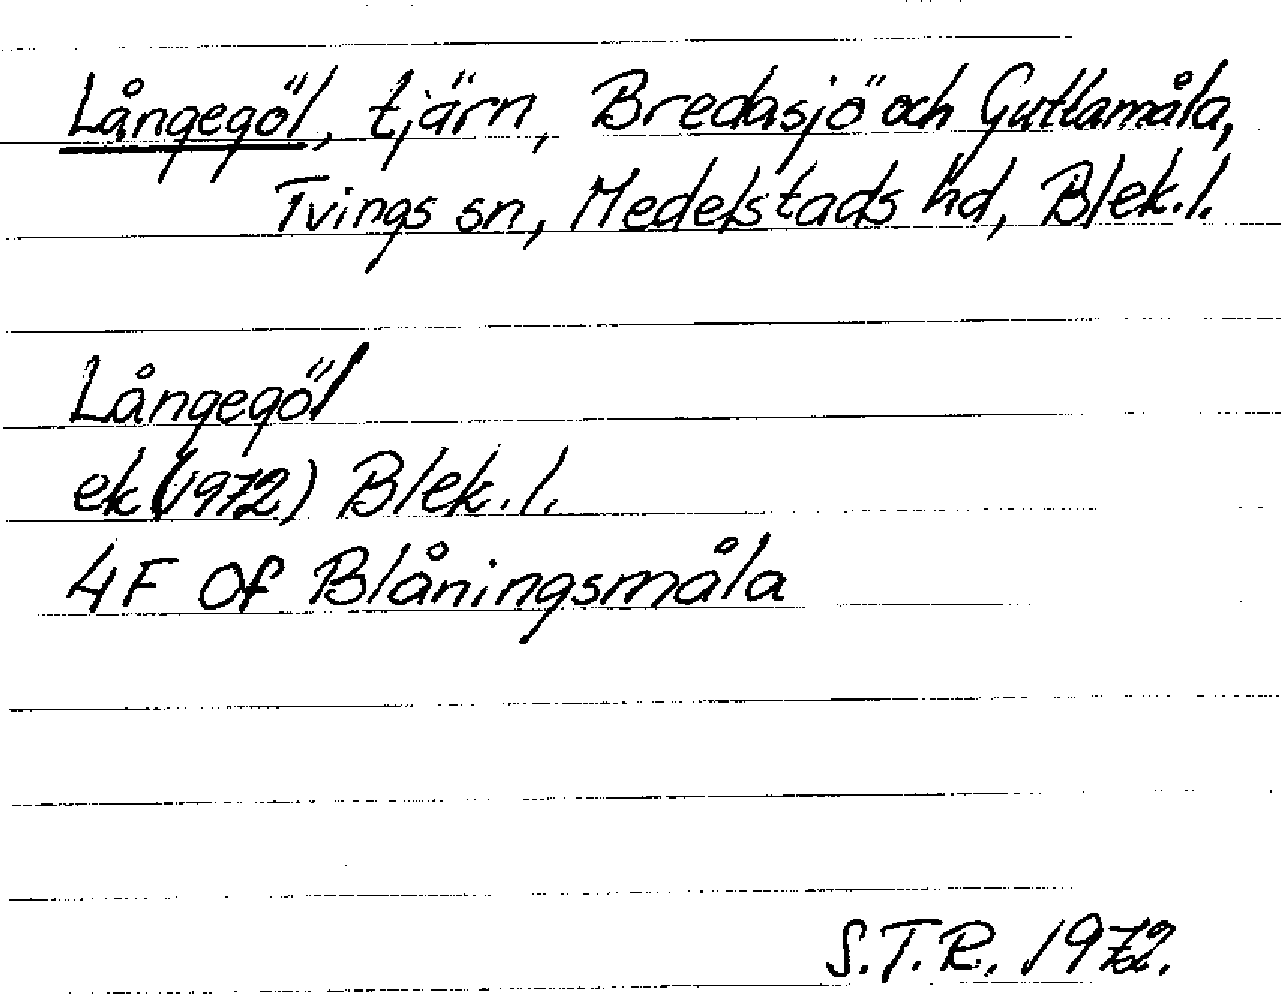 Långegöl, tjärn, Bredasjö och Guttamåla,
Tvings sn, Medelstads hd, Blek.l.
Långegöl
ek (1972) Blek.l.
4F 0f Blåningsmåla
S.T.R. 1972.